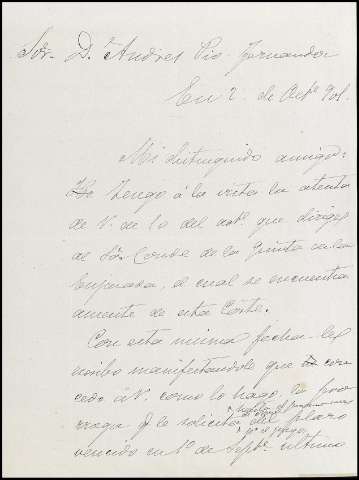 Sor. D. Andres Pio Fernandez
En 2 de Octe. 901.
Mi distinguido amigo:
Tengo á la vista la atenta
de V. de 1o del act. que dirige
al Sr. Conde de la Quinta de la
Enjarada, el cual se encuentra
ausente de esta Córte.
Con esta misma fecha le
escribo manifestandole que con-
cedo á V. como lo hago, la pror-
roga q. le solicita del plazo
vencido en 1o. de Septe. ultimo